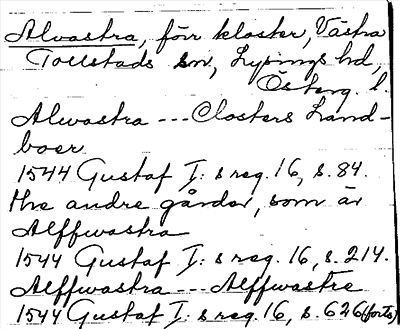 Alvastra, förr kloster, Västra
Tollstads sn, Lysings hd,
Österg. l.
Alwastra --- Closters Land-
boer
1544 Gustaf I: s reg. 16, s. 84.
the andre gårder, som är
Alffwastra
1544 Gustaf I: s reg. 16, s. 214.
Alffwastra --- Alffwastre
1544 Gustaf I: s reg. 16, s. 626 (forts)